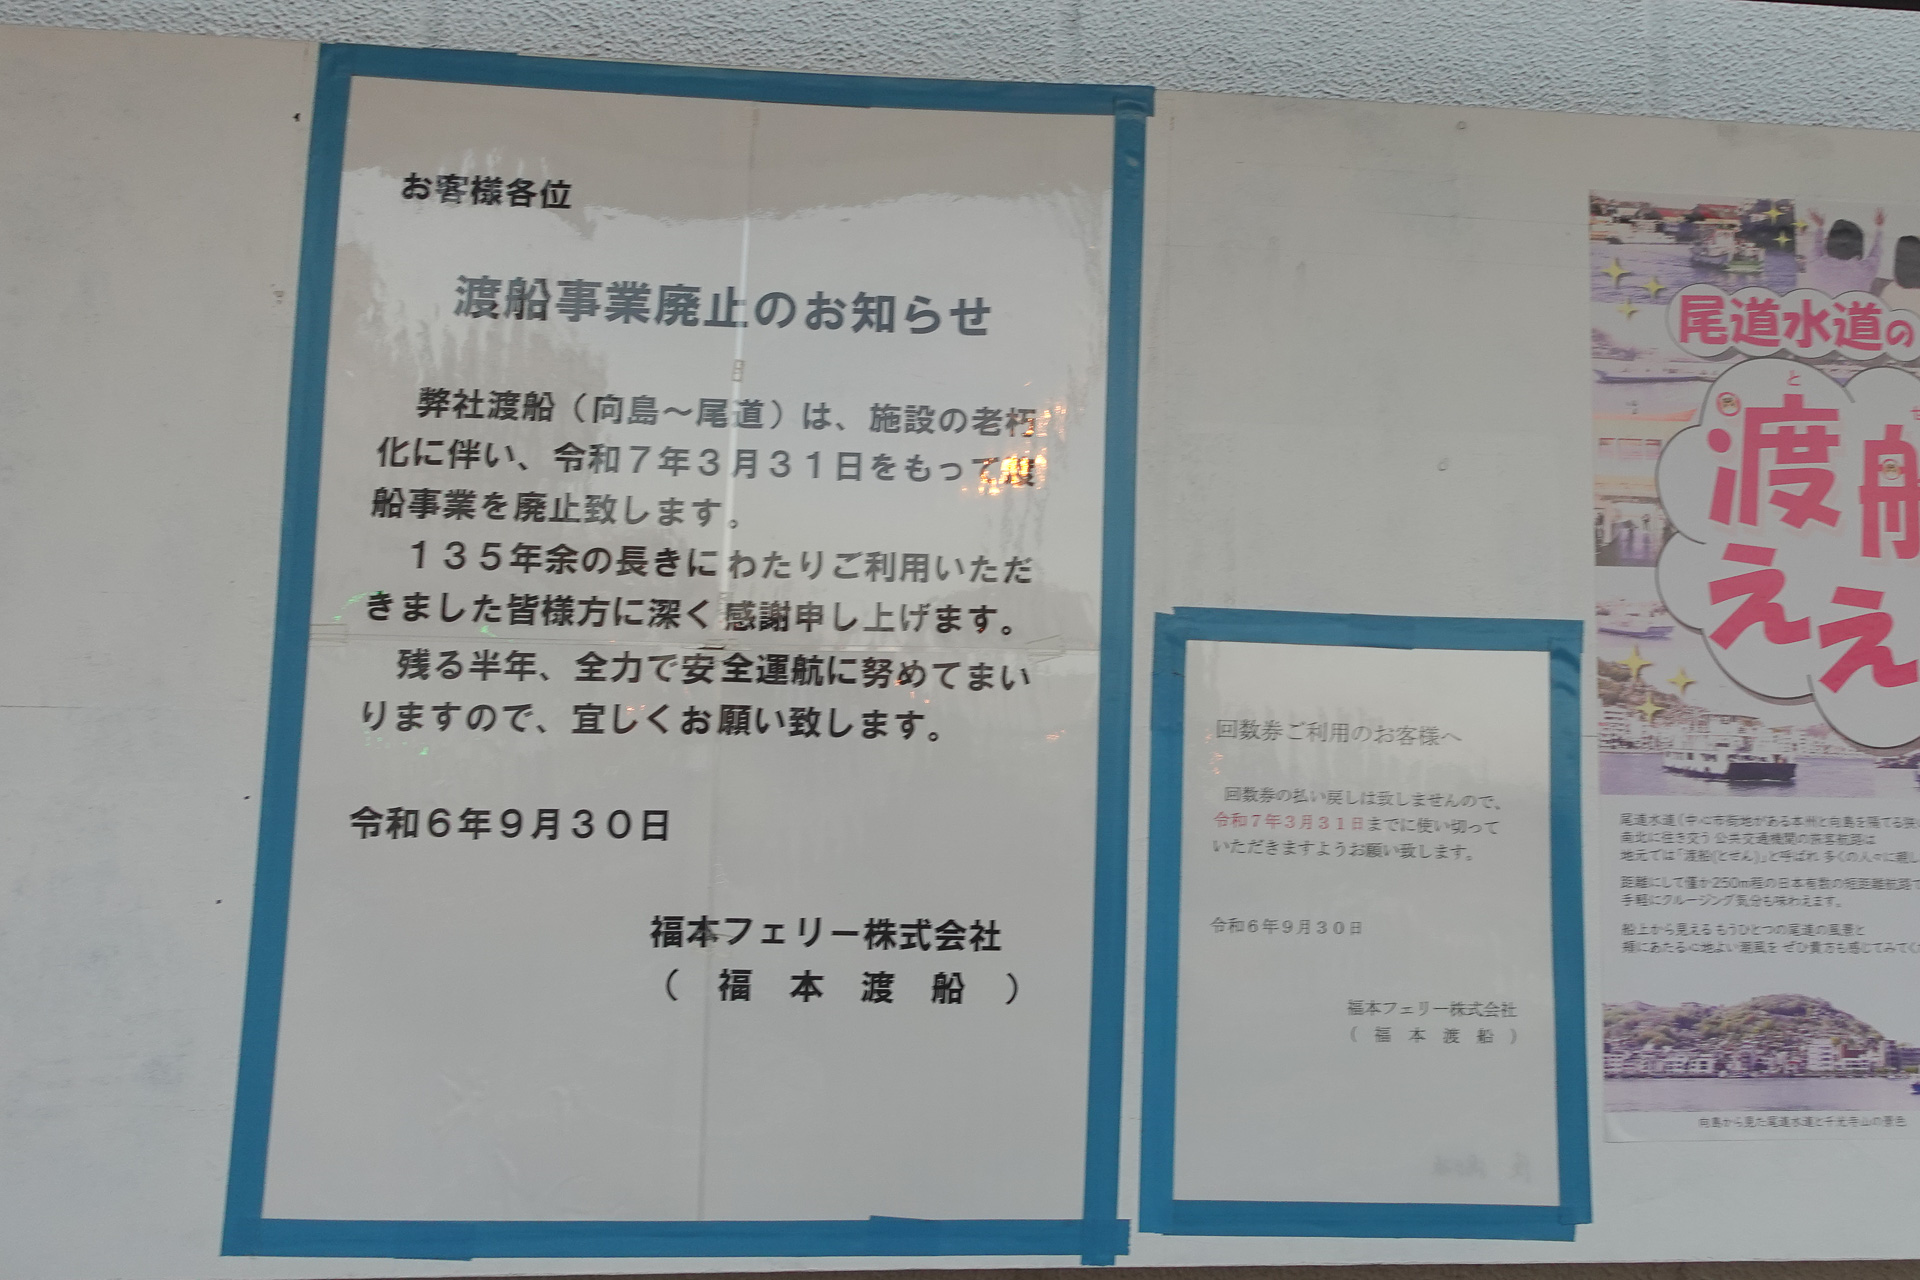 お客様各位
渡船事業廃止のお知らせ
弊社渡船（向島～尾道）は、施設の老朽
化に伴い、令和７年３月３１日をもって渡
船事業を廃止致します。
１３５年余の長きにわたりご利用いただ
きました皆様方に深く感謝申し上げます。
残る半年、全力で安全運航に努めてまい
りますので、宜しくお願い致します。
令和６年９月３０日
福本フェリー株式会社
（福本渡船）
回数券ご利用のお客様へ
回数券の払い戻しは致しませんので、
令和７年３月３１日までに使い切って
いただきますようお願い致します。
令和６年９月３０日
福本フェリー株式会社
（福本渡船）
尾道水道の
と
渡船
ええ
尾道水道(中心市街地がある本州と向島を隔てる狭
南北に往き交う 公共交通機関の旅客航路は
地元では「渡船(とせん)」と呼ばれ 多くの人々に親し
距離にして僅か250m程の日本有数の短距離航路で
手軽にクルージング気分も味わえます。
船上から見える もうひとつの尾道の風景と
頬にあたる心地よい潮風を ぜひ貴方も感じてみてく
向島から見た尾道水道と千光寺山の景色